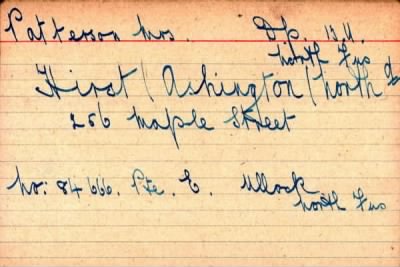 Patterson Mrs. Dp. 13.11.
North Fus
Hirst / Ashington / North d
256 Maple Street
No: 84666. Pte. E. Ullock
North Fus